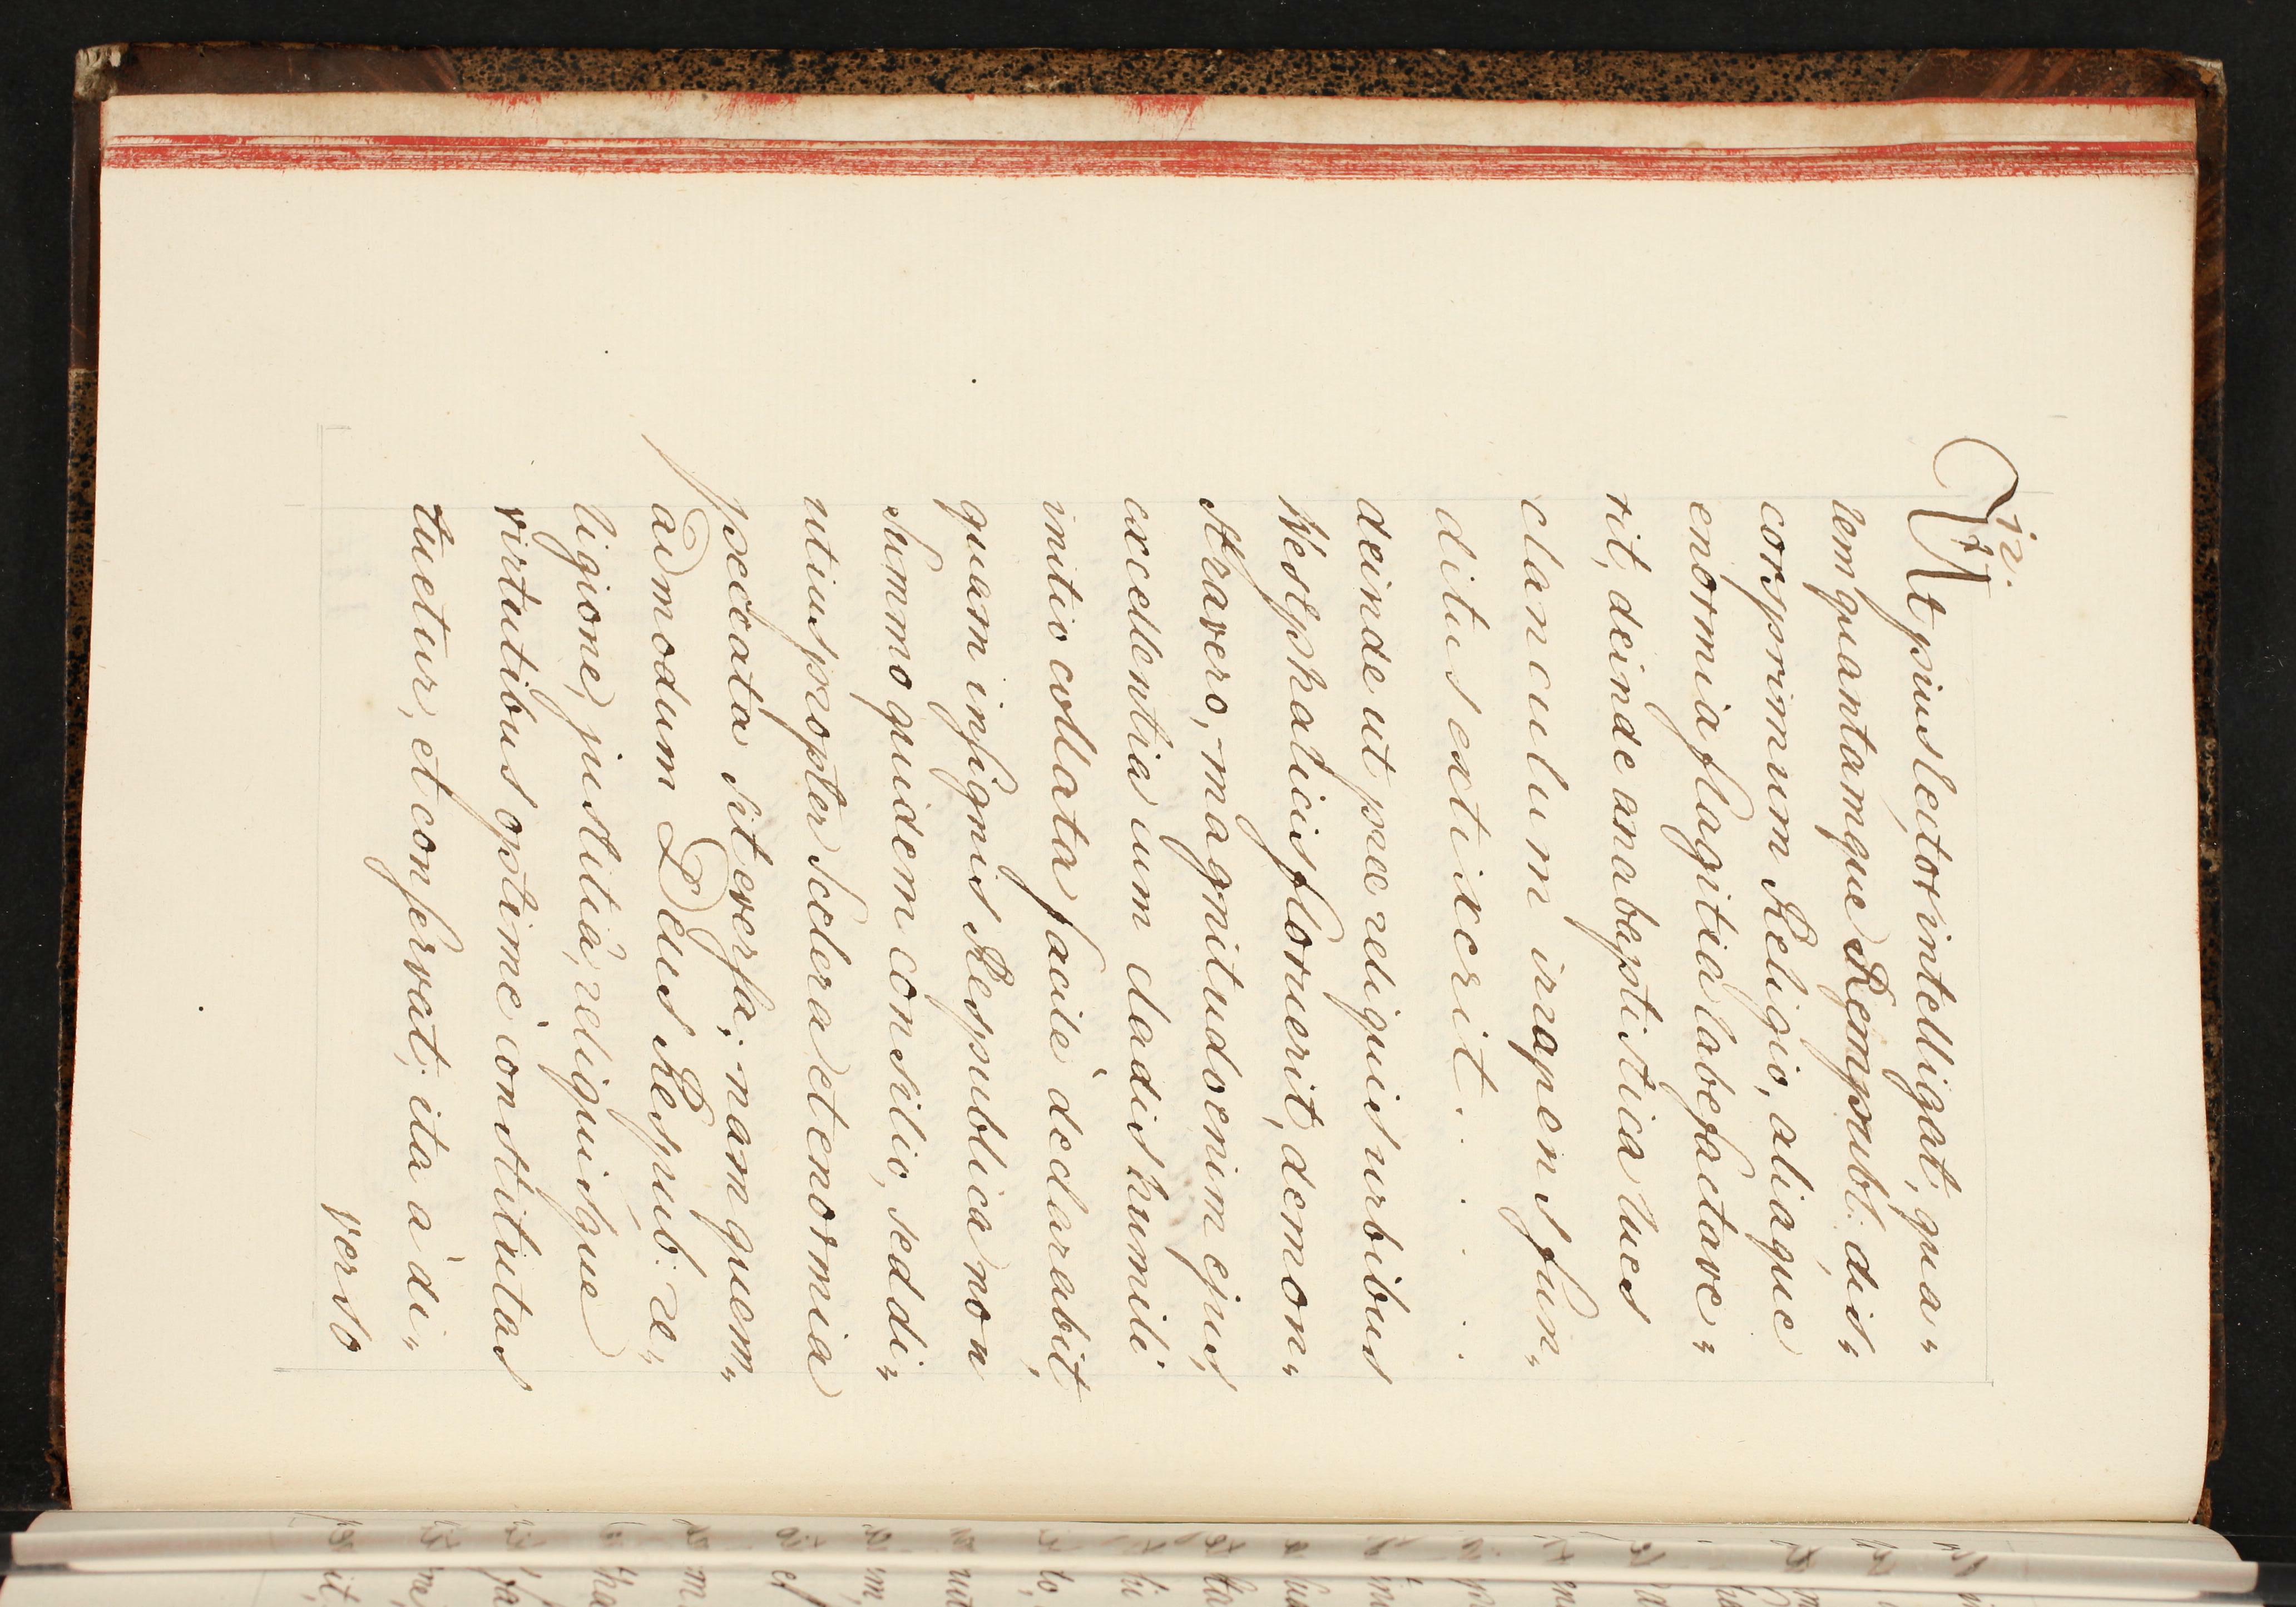 12.
Ut pius lector intelligat, qua„
lem quantamque Rempubl: dis„
cors primum Religio, aliaque
enormia flagitia labefactave„
rit, deinde anabaptistica lues
clanculum irrepens fun„
ditus extixerit . . . . .
deinde ut præ reliquis urbibus
Westphalicis floruerit, demon„
stravero, magnitudo enim ejus,
excellentia cum cladis humili
initio collata facilè declarabit,
quam insignis Respublica non
summo quidem consilio, sed di„
utius propter scelera et enormia
peccata sit eversa; nam quem„
admodum Deus Respub: re„
ligione, justitiâ, reliquisque
virtutibus optimè constitutas
tuetur, et conservat; ita à di„
verso